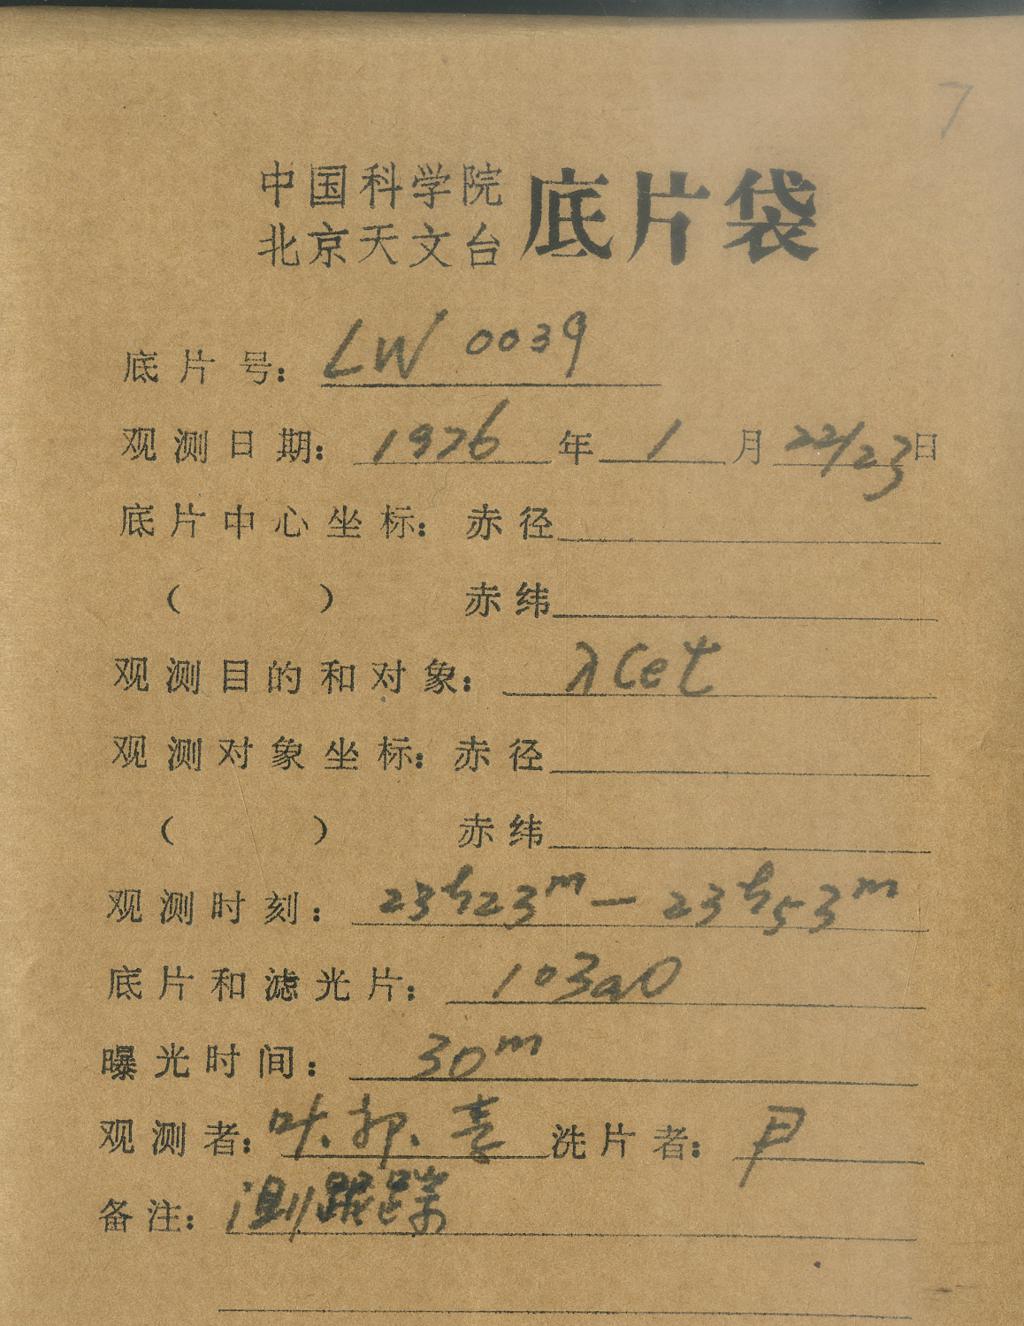 7
中国科学院
北京天文台 底片袋
底片号: LW 0039
观测日期: 1976 年 1 月 22/23 日
底片中心坐标: 赤径
( ) 赤纬
观测目的和对象: λ Cet
观测对象坐标: 赤径
( ) 赤纬
观测时刻: 23h23m — 23h53m
底片和滤光片: 103aO
曝光时间: 30m
观测者: 叶. 洗片者: 尹
备注: 测跟踪